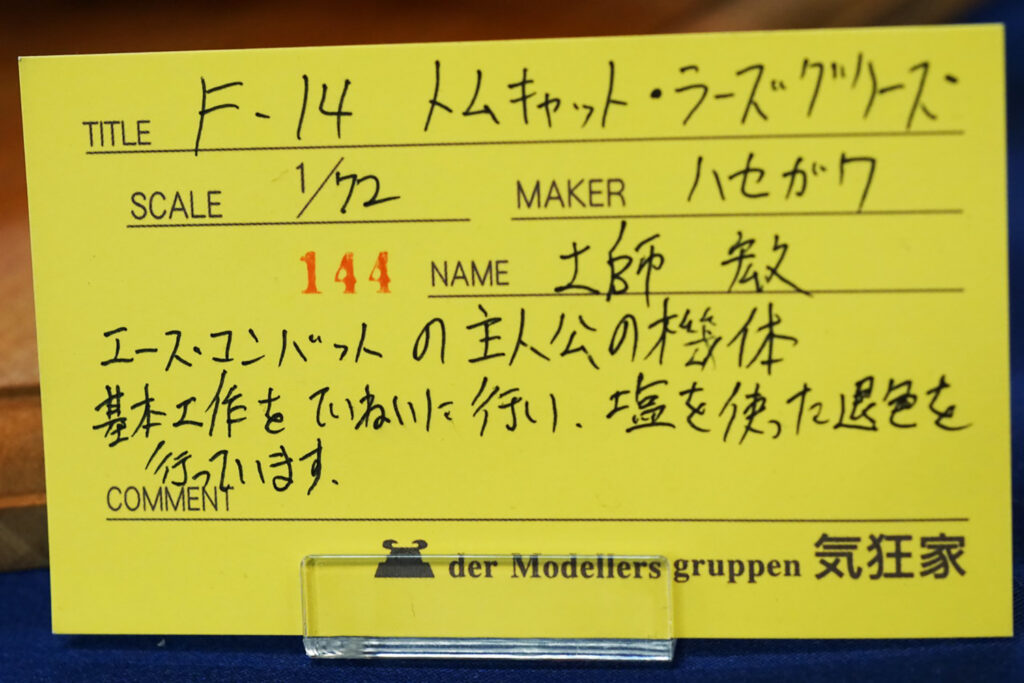 TITLE F-14 トムキャット・ラーズグリーズ・
SCALE 1/72 MAKER ハセガワ
144 NAME 土師 宏文
エース・コンバットの主人公の機体
基本工作をていねいに行い、塩を使った退色を
行っています.
COMMENT
der Modellers gruppen 気狂家